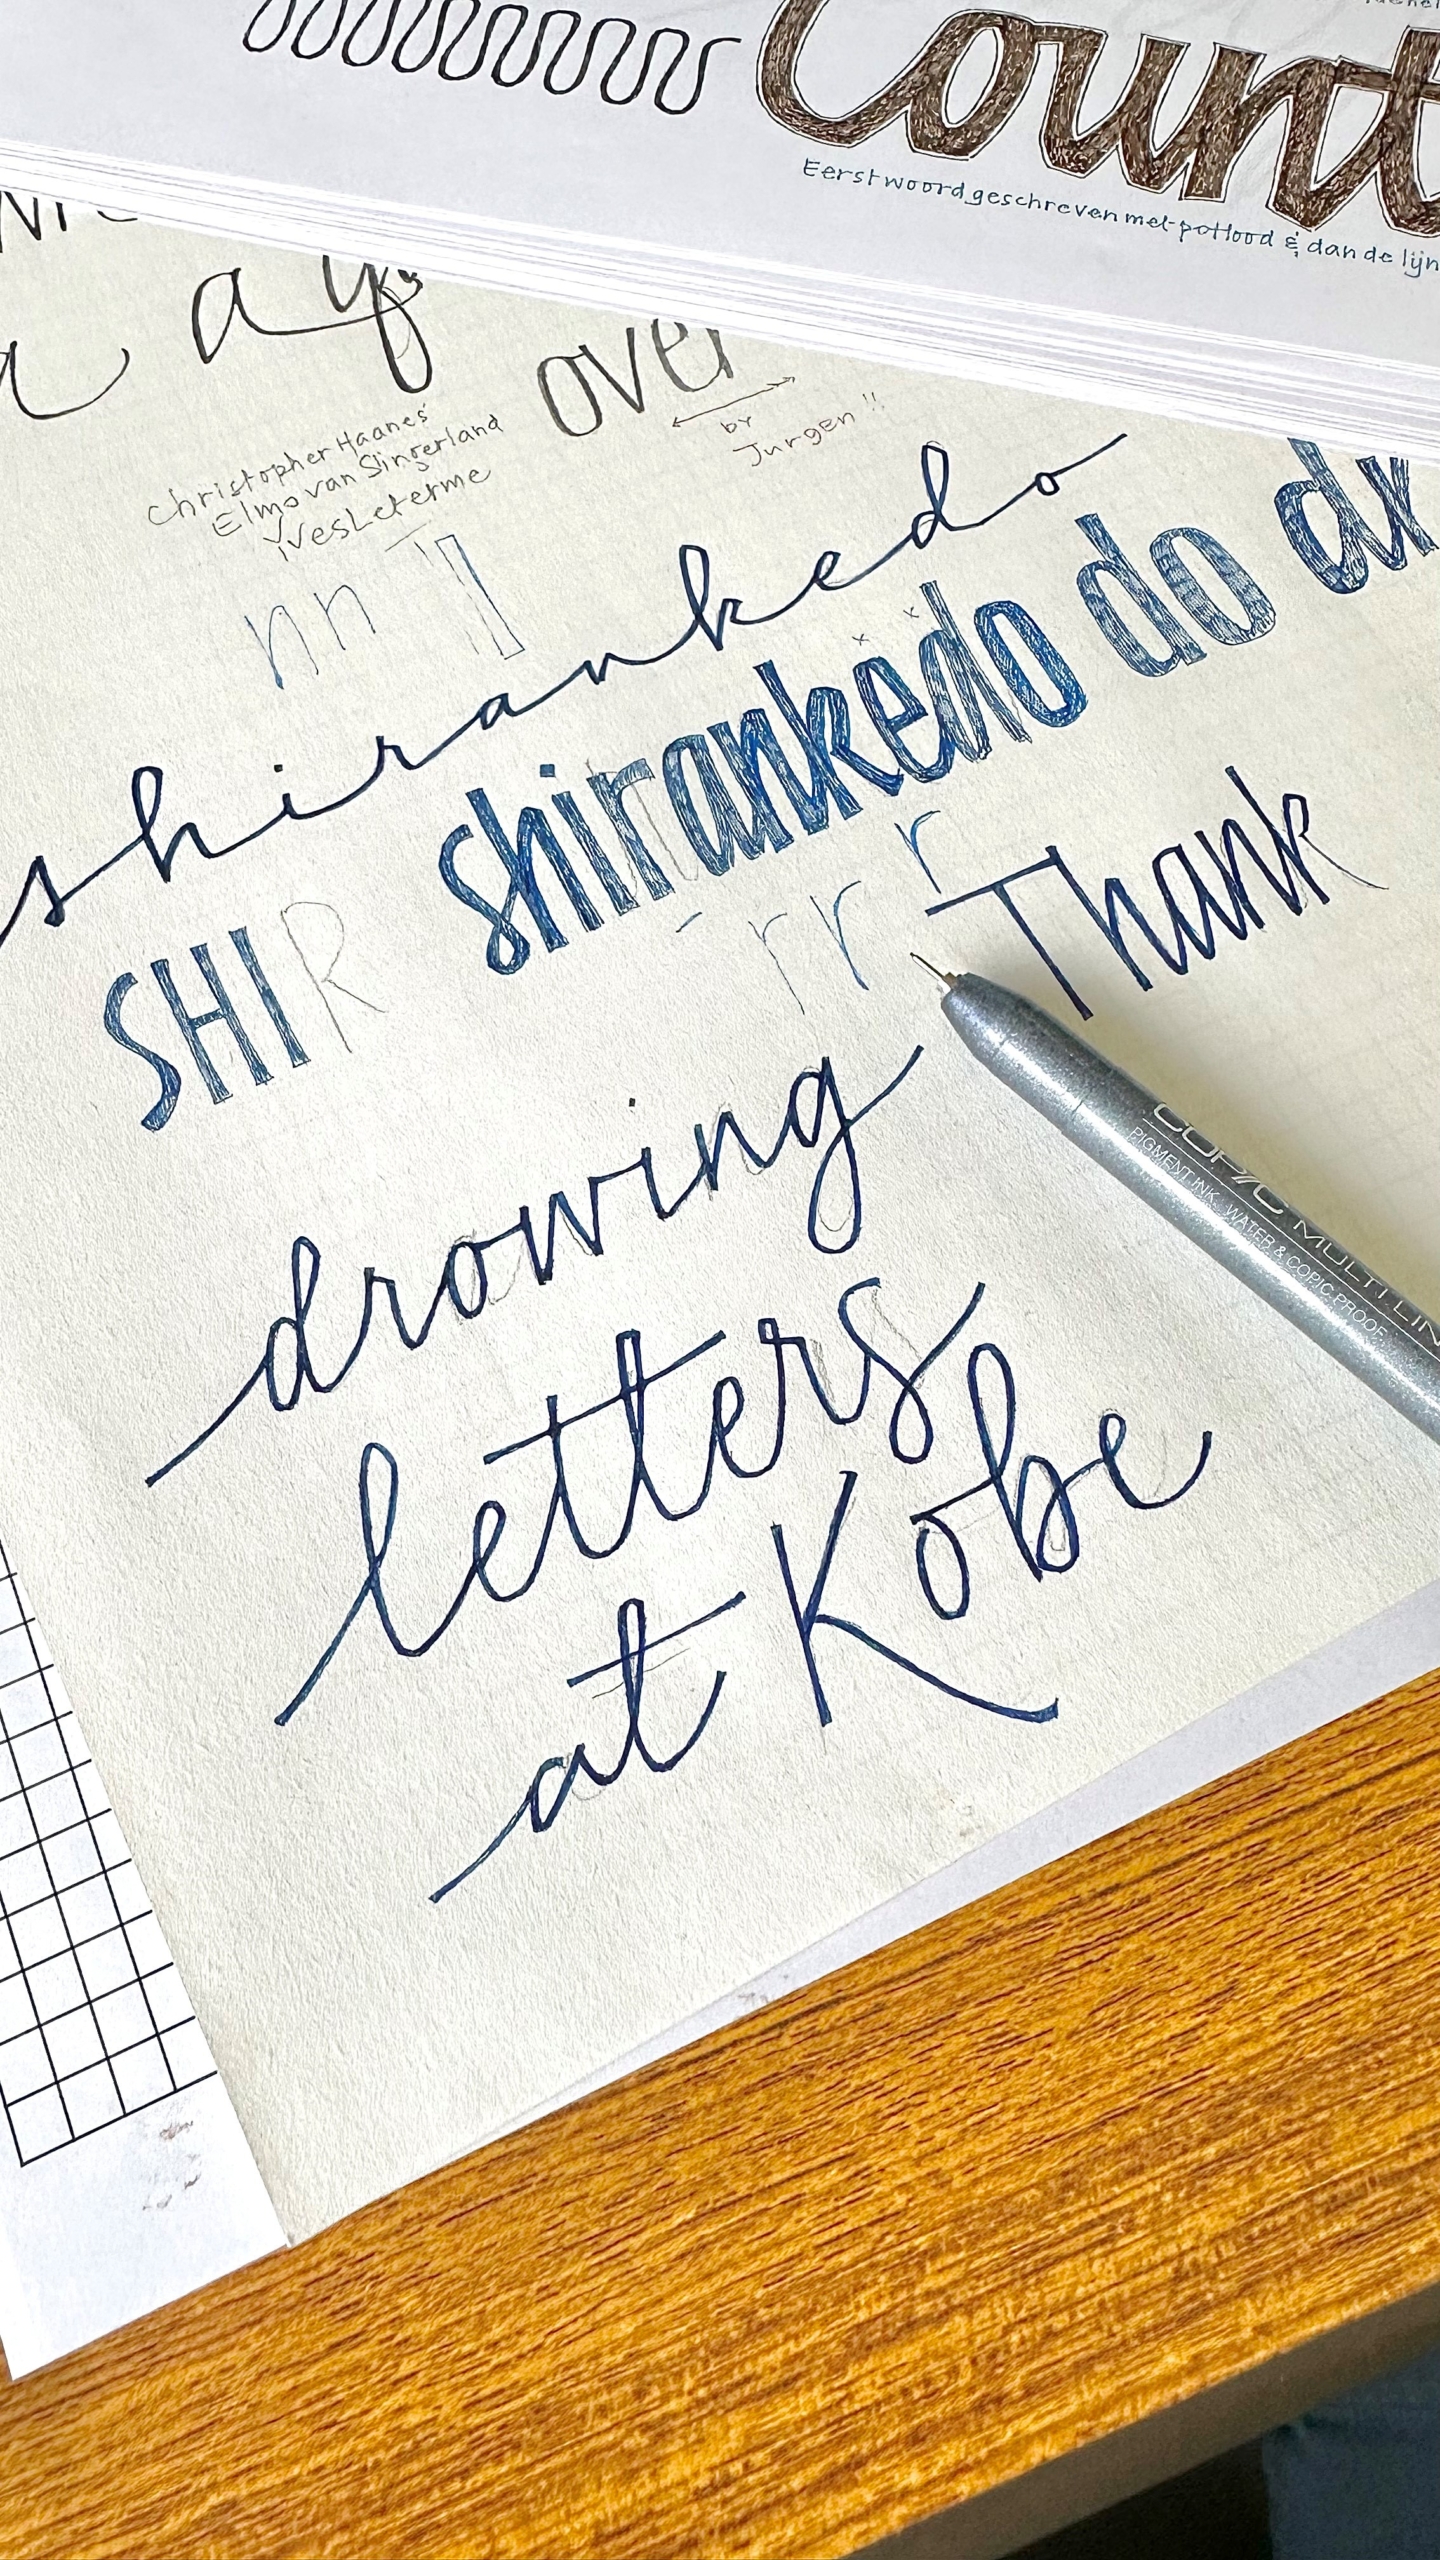 Count
Eerst woord geschreven met potlood & dan de lijn
a
over
by
Jurgen!!
Christopher Haanes'
Elmo van Slingerland
Yves Leterme
nn
shirankedo
shirankedo do
SHIR
r
rrr
Thank
COPIC MULTILIN
PIGMENT INK. WATER & COPIC PROOF
drowing
letters
at Kobe